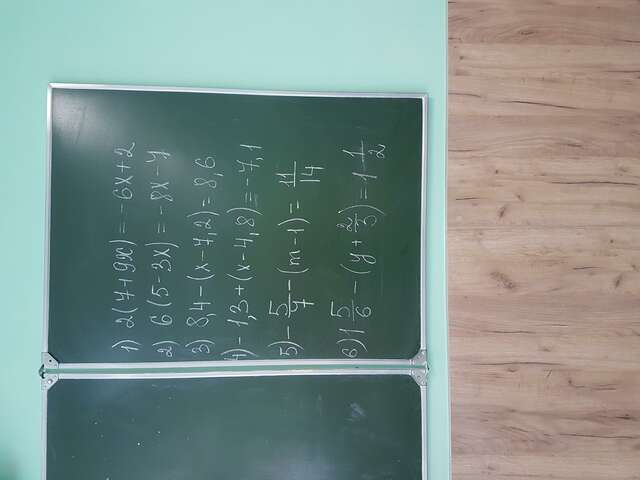 1) 2(7+9x) = -6x+2
2) 6(5-3x) = -8x-7
3) 8,4-(x-7,2) = 8,6
4) -1,3+(x-4,8) = -7,1
5) -5/7-(m-1) = 11/14
6) 1 5/6-(y+2/3) = 1 1/2